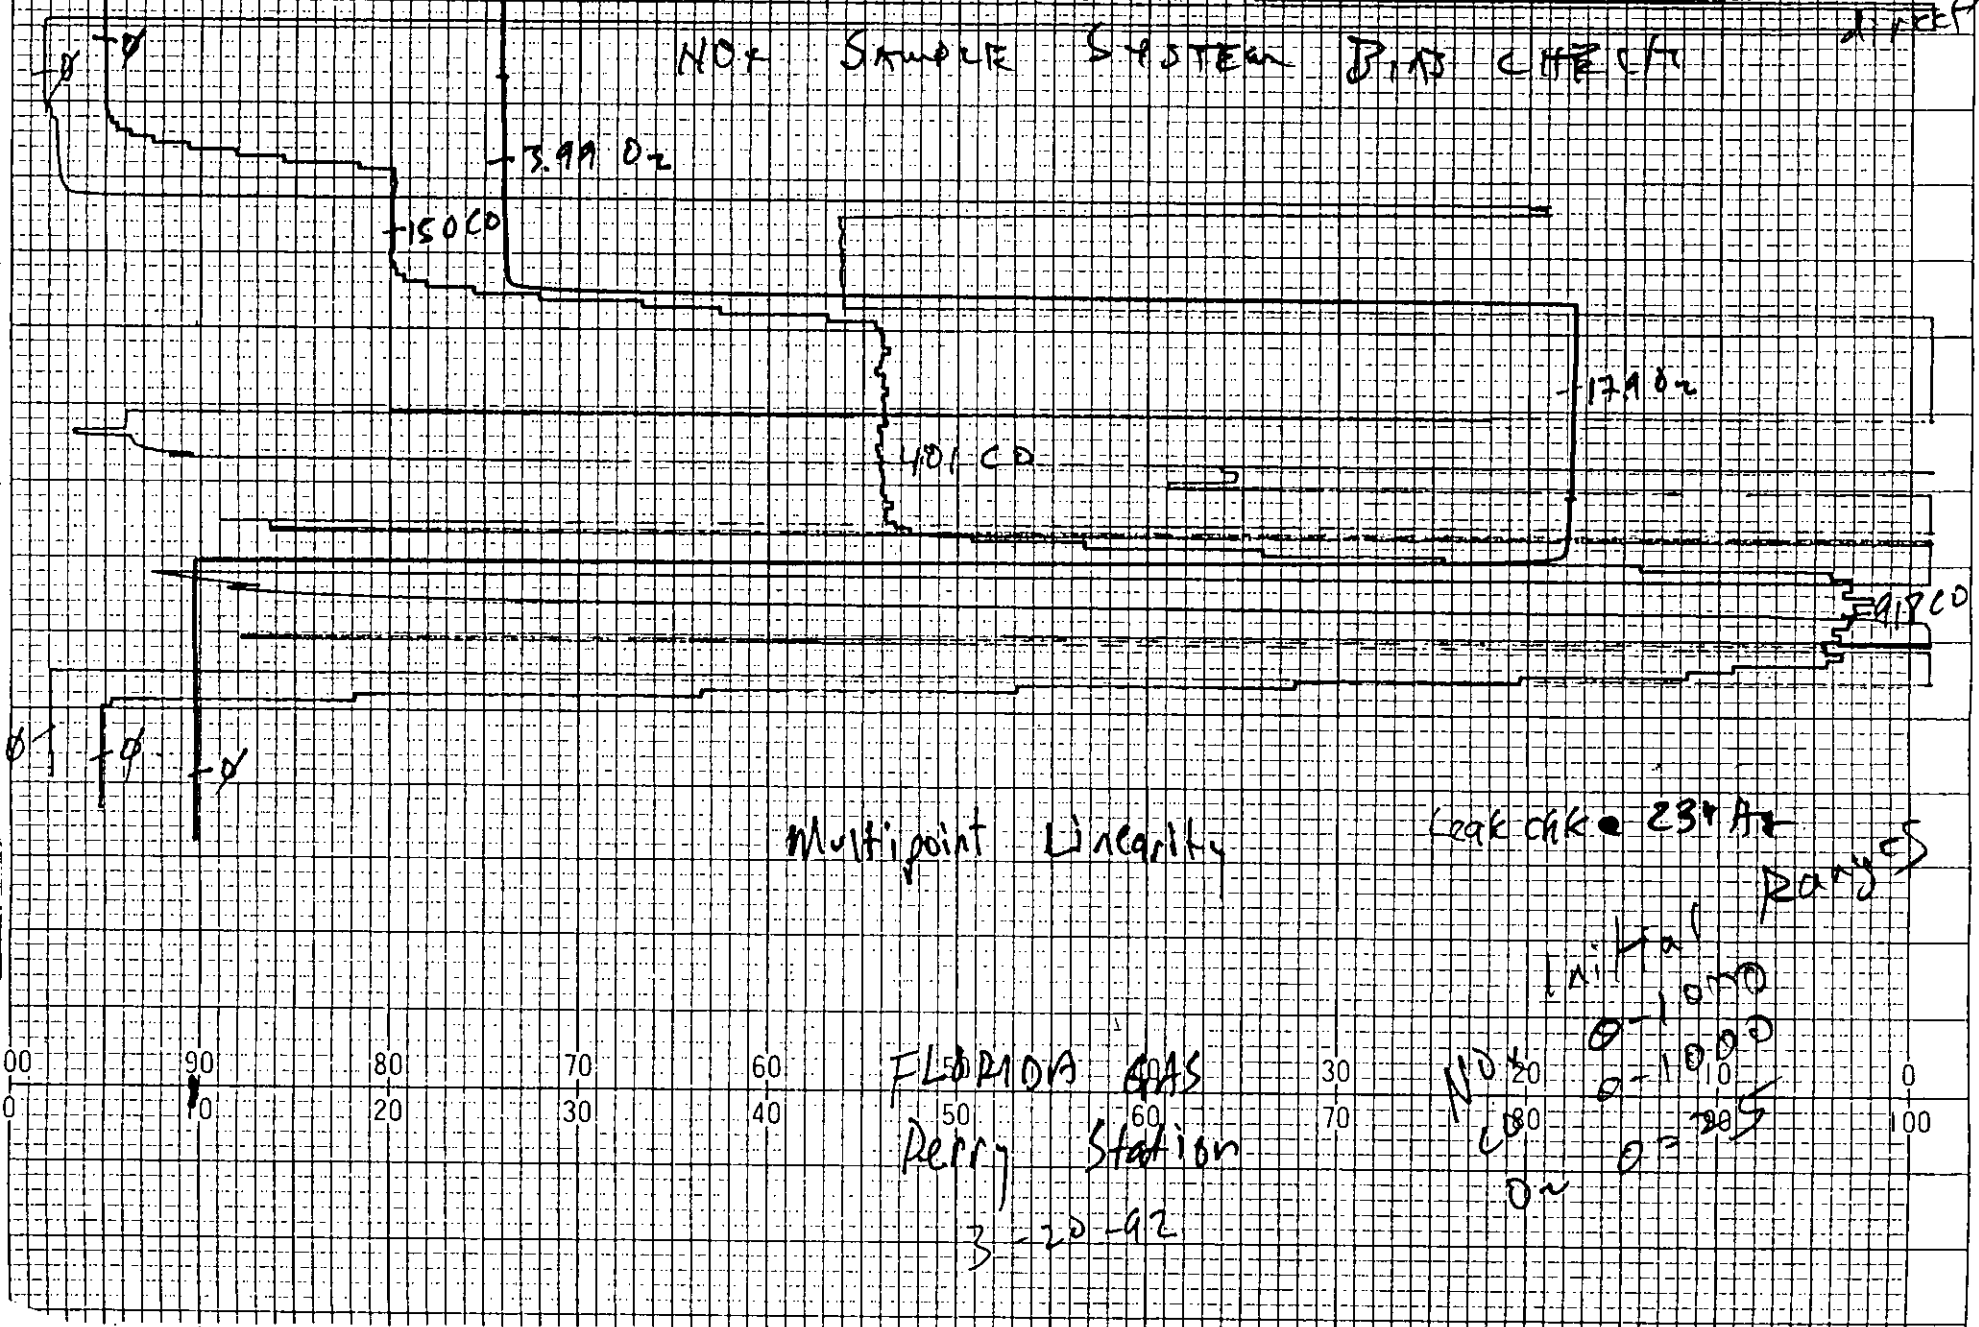 direct
NOx SAMPLE SYSTEM BIAS CHECK
Ø Ø
3.99 O2
150 CO
17.9 O2
401 CO
918 CO
Ø Ø Ø
Multipoint Linearity
Leak chk 23"
Ranges
Initial
NOx 0-1000
CO 0-1000
O2 0-25
FLORIDA GAS
Perry Station
3-20-92
00 90 80 70 60 50 40 30 20 10 0
0 10 20 30 40 50 60 70 80 90 100